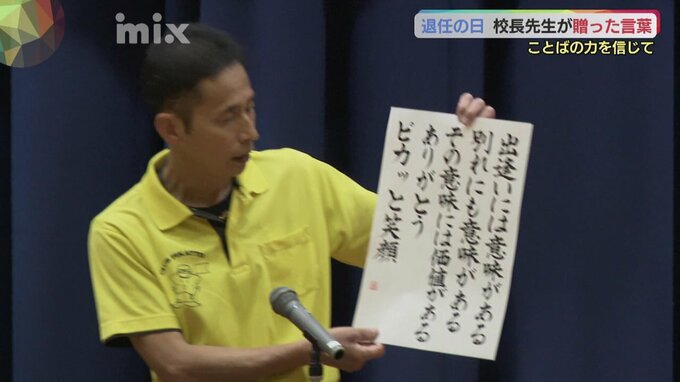 mix
退任の日 校長先生が贈った言葉
ことばの力を信じて
出逢いには意味がある
別れにも意味がある
その意味には価値がある
ありがとう
ピカッと笑顔